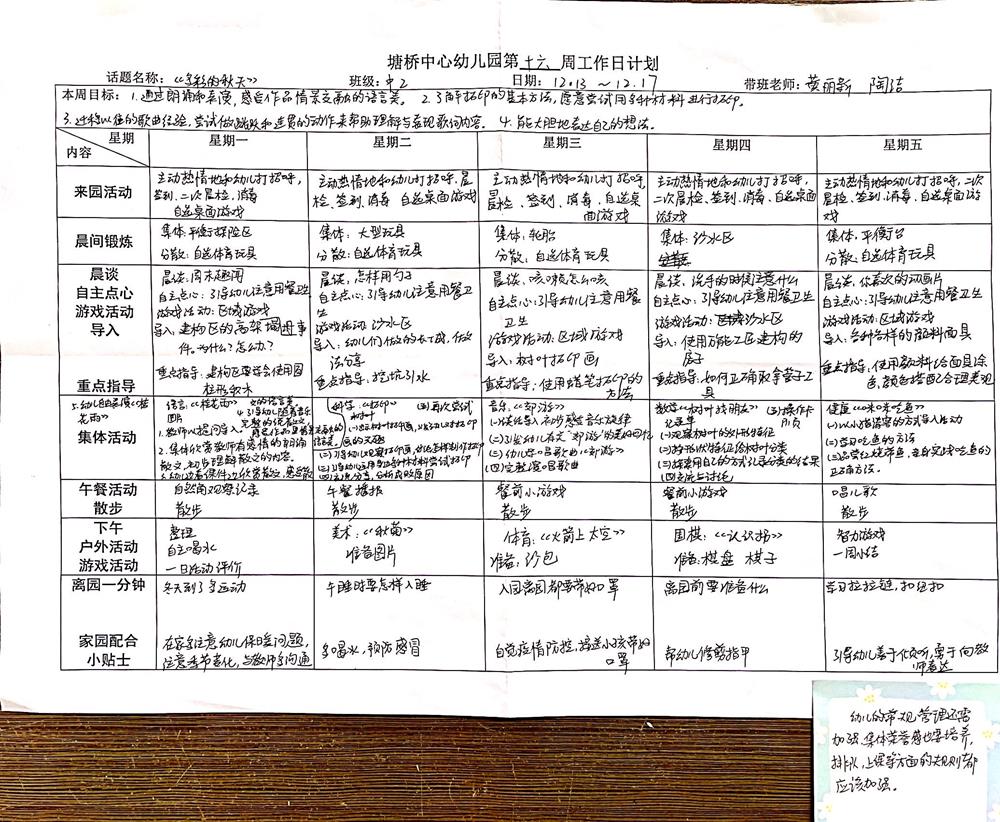 塘桥中心幼儿园第 十六 周工作日计划
话题名称：《多彩的秋天》 班级：中2 日期：12.13～12.17 带班老师：黄丽新 陶洁
本周目标：1.通过朗诵和表演，感受作品情景交融的语言美。 2.了解拓印的基本方法，愿意尝试用多种材料进行拓印。
3.迁移以往的歌曲经验，尝试做连贯的动作来帮助理解与表现歌词内容。 4.能大胆地表达自己的想法。
星期
内容
星期一 星期二 星期三 星期四 星期五
来园活动
主动热情地和幼儿打招呼，
签到、二次晨检、消毒
自选桌面游戏
主动热情地和幼儿打招呼、晨
检、签到、消毒 自选桌面游戏
主动热情地和幼儿打招呼，
晨检、签到、消毒、自选桌
面游戏
主动热情地和幼儿打招呼、
二次晨检、签到、消毒、自选桌面
游戏
主动热情地和幼儿打招呼，二次
晨检、签到、消毒、自选桌面游
戏
晨间锻炼
集体：平衡探险区
分散：自选体育玩具
集体：大型玩具
分散：自选体育玩具
集体：轮胎
分散：自选体育玩具
集体：沙水区
集体：平衡台
分散：自选体育玩具
晨谈
自主点心
游戏活动
导入
重点指导
晨谈：周末趣闻
自主点心：引导幼儿注意用餐卫生
游戏活动：区域游戏
导入：建构区的高架倒塌事
件。为什么？怎么办？
重点指导：建构区要学会使用圆
柱形积木
晨谈：怎样用勺子
自主点心：引导幼儿注意用餐卫
生
游戏活动：沙水区
导入：幼儿们做的水工成，做做
活动
重点指导：挖坑引水
晨谈：咳嗽怎么咳
自主点心：引导幼儿注意用餐
卫生
游戏活动：区域游戏
导入：树叶拓印画
重点指导：使用蜡笔拓印的
方法
晨谈：洗手的时候注意什么
自主点心：引导幼儿注意用餐卫生
游戏活动：沙水区
导入：使用万能工区建构的
房子
重点指导：如何正确取拿管子工
具
晨谈：你喜欢的动画片
自主点心：引导幼儿注意用餐卫生
游戏活动：区域游戏
导入：各种各样的颜料面具
重点指导：使用颜料给面具涂
色，颜色搭配合理美观
集体活动
语言：《桂花雨》
1.教师以提问导入
2.集体欣赏教师有感情的朗诵
散文，初步理解散文的内容。
科学：《拓印》
(三)再次尝试
音乐：《郊游》
(一)谈话导入，初步感受音乐旋律
(二)引发幼儿有关“郊游”的美好回忆
(三)幼儿学唱歌曲《郊游》
(四)完整演唱歌曲
数学：《树叶找朋友》
(一)观察树叶的外形特征
(二)按形状特征给树叶分类
(三)探索用自己的方式记录分类的结果
(四)交流与讨论
健康：《咪咪吃鱼》
(一)以小猫请客的方式导入活动
(二)学习吃鱼的方法
(三)品尝红烧带鱼，自由实践吃鱼的
正确方法。
午餐活动
散步
自然角观察记录
散步
午餐播报
散步
餐前小游戏
散步
餐前小游戏
散步
唱儿歌
散步
下午
户外活动
游戏活动
整理
自主喝水
一日活动评价
美术：《秋菊》
准备图片
体育：《火箭上太空》
准备：沙包
围棋：《认识拐》
准备：棋盘 棋子
智力游戏
一周小结
离园一分钟
冬天到了多运动
午睡时要怎样入睡
入园离园都要带好口罩
离园前要准备什么
学习拉拉链，扣纽扣
家园配合
小贴士
在家多注意幼儿保暖问题，
注意季节变化，与教师多沟通
多喝水，预防感冒
自觉疫情防控，接送小孩带好
口罩
帮幼儿修剪指甲
引导幼儿善于倾听，勇于向教
师表达
幼儿的常规管理还需
加强，集体荣誉感也要培养，
排队、上课等方面的规则都
应该加强。